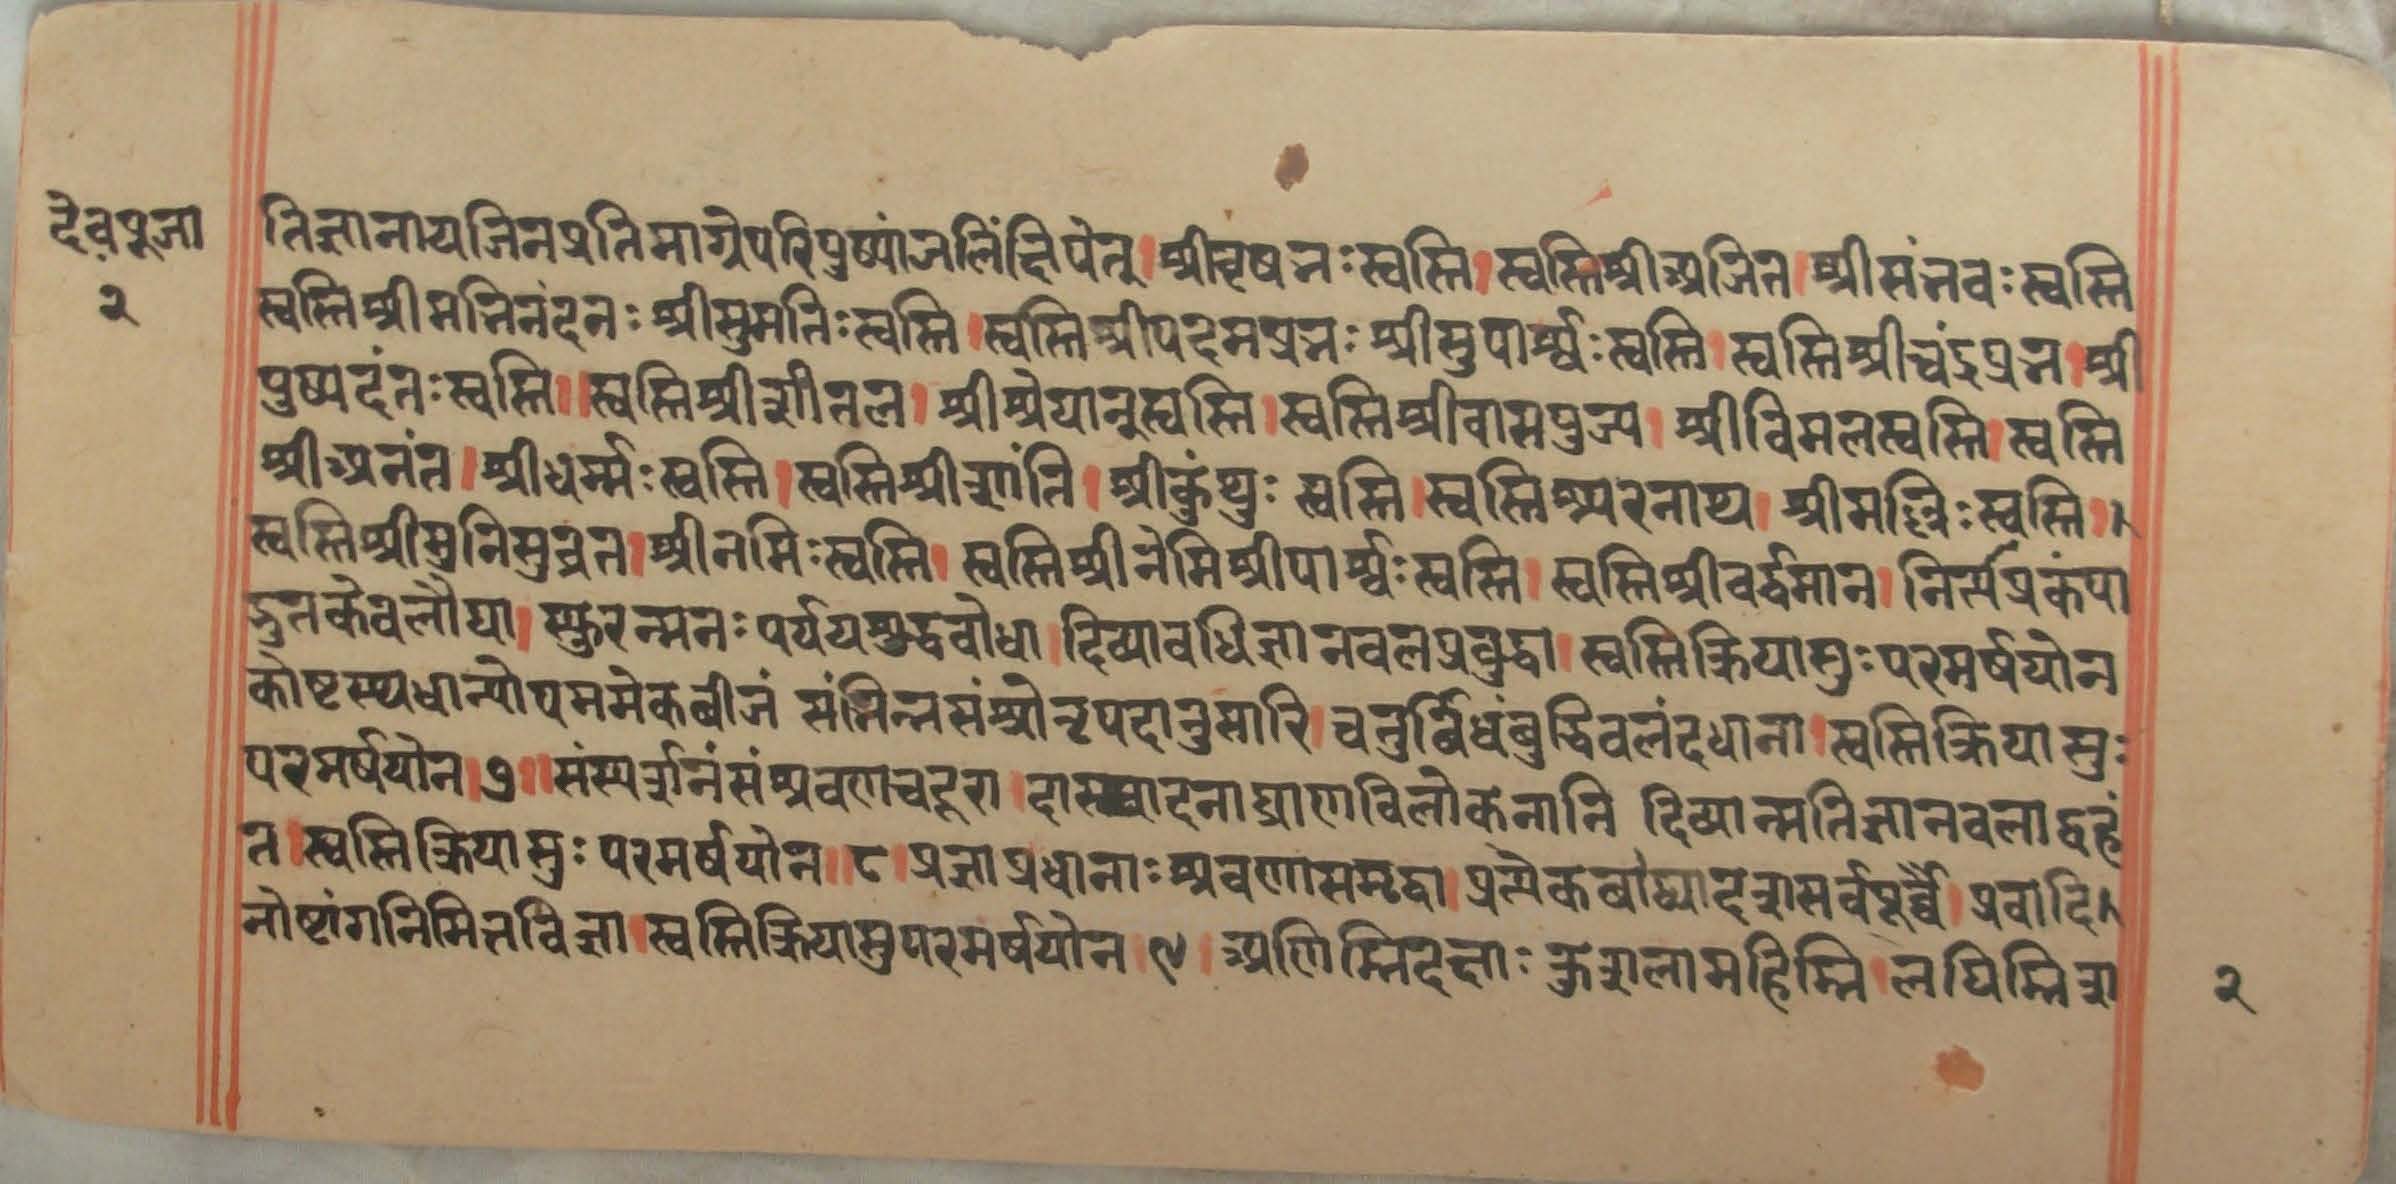 देवपूजा
२
तिज्ञानायजिनप्रतिमाग्रेपरिपुष्पांजलिंक्षिपेत्।श्रीवृषभःस्वस्ति।स्वस्तिश्रीअजित।श्रीसंभवःस्वस्ति
स्वस्तिश्रीमभिनंदनःश्रीसुमतिःस्वस्ति।स्वस्तिश्रीपदमप्रभःश्रीसुपार्श्वःस्वस्ति।स्वस्तिश्रीचंद्रप्रभ।श्री
पुष्पदंतःस्वस्ति॥स्वस्तिश्रीशीतल।श्रीश्रेयान्स्वस्ति।स्वस्तिश्रीवासपुज्य।श्रीविमलस्वस्ति।स्वस्ति
श्रीअनंत।श्रीधर्म्मःस्वस्ति।स्वस्तिश्रीशांति।श्रीकुंथुः स्वस्ति।स्वस्तिअरनाथ।श्रीमल्लिःस्वस्ति।
स्वस्तिश्रीमुनिसुव्रत।श्रीनमिःस्वस्ति।स्वस्तिश्रीनेमिश्रीपार्श्वःस्वस्ति।स्वस्तिश्रीवर्द्धमान।नित्यप्रकंपा
द्भुतकेवलौघा।स्फुरन्मनःपर्ययशुद्धबोधा।दिव्यावधिज्ञानवलप्रवुद्धा।स्वस्तिक्रियासुःपरमर्षयोन
कोष्टस्थधान्योपममेकबीजं संभिन्नसंश्रोतृपदानुसारि।चतुर्विधंबुद्धिवलंदधाना।स्वस्तिक्रियासुः
परमर्षयोन।७॥संस्पर्शनंसंश्रवणचदूरा।दास्वादनाघ्राणविलोकनानि दिव्यान्मतिज्ञानवलाद्वहं
त।स्वस्तिक्रियासुःपरमर्षयोन॥८।प्रज्ञाप्रधानाःश्रवणासमृद्धा।प्रत्येकबोद्यादशसर्वपूर्व्वै।प्रवादि
नोष्टांगनिमित्तविज्ञा।स्वस्तिक्रियासुपरमर्षयोन।९।अणिम्निदक्षाःकुशलामहिम्नि।लघिम्निशा
२